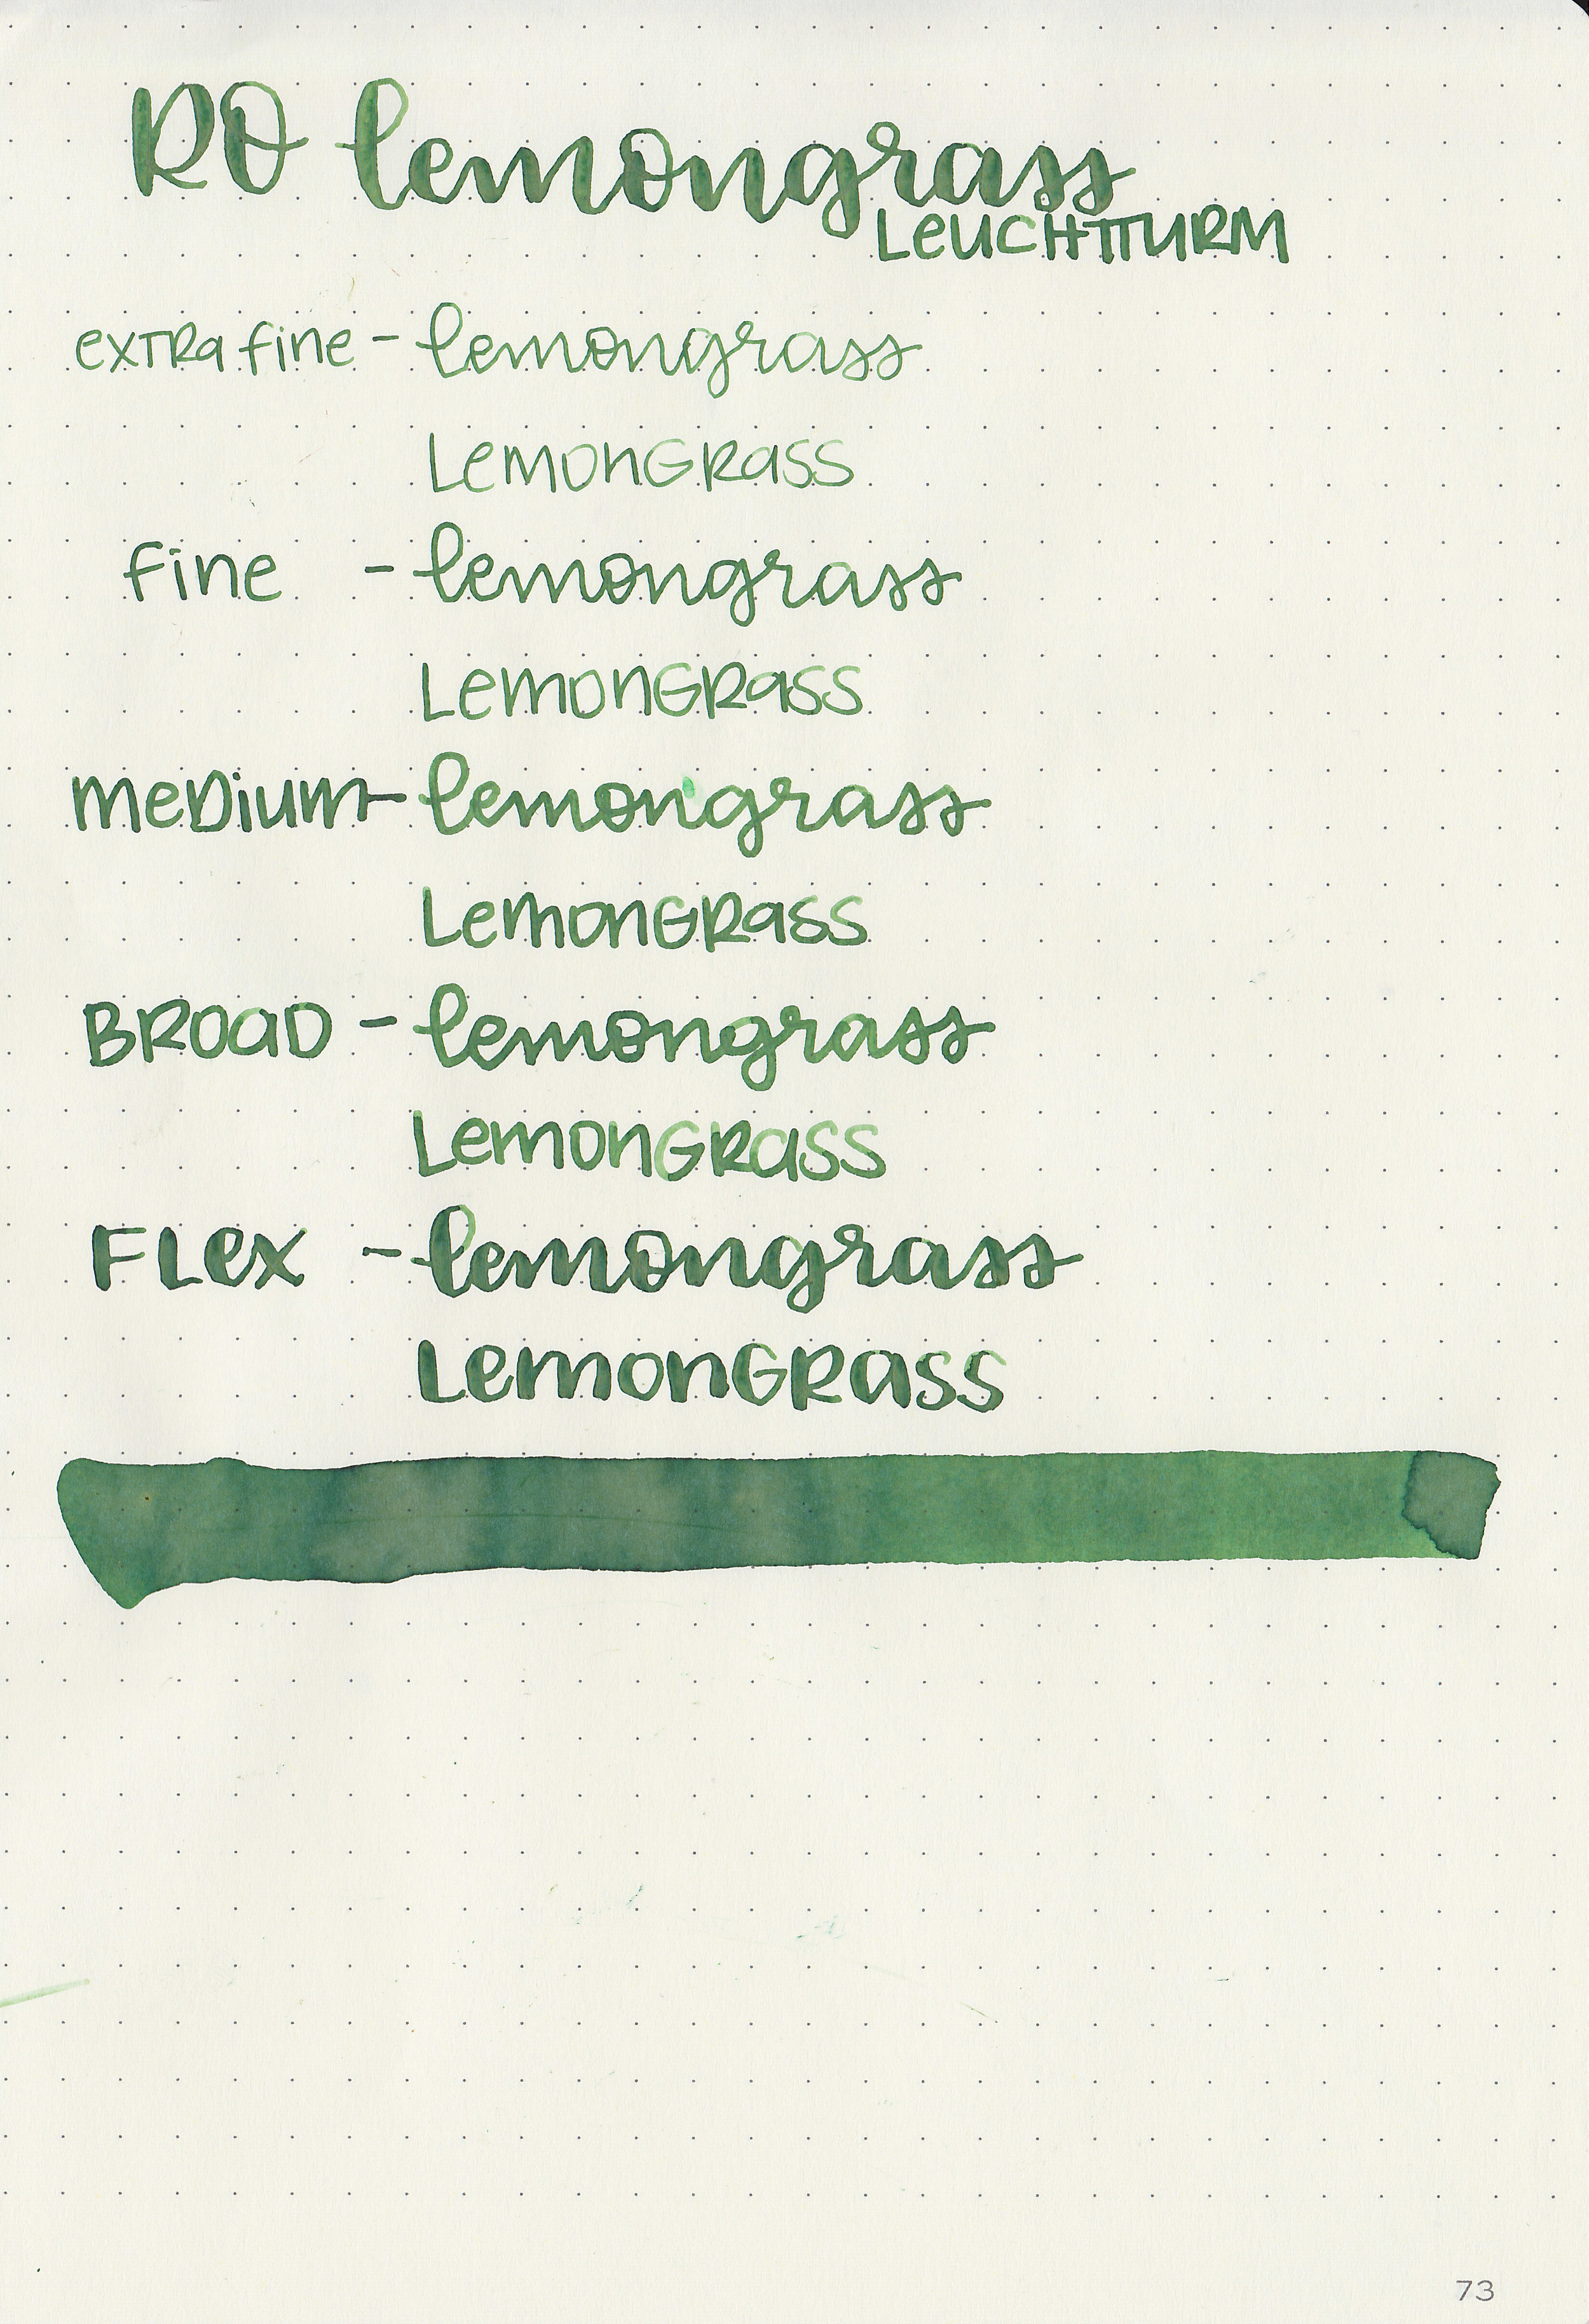 RO lemongrass
LEUCHTTURM
exTRa fine - lemongrass
LemonGRass
fine - lemongrass
LemonGRass
meDium - lemongrass
LemonGRass
BROaD - lemongrass
LemonGRass
FLex - lemongrass
LemonGRass
73